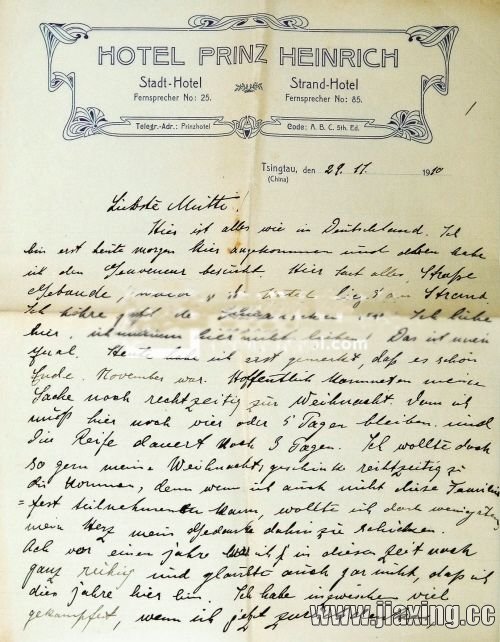 HOTEL PRINZ HEINRICH
Stadt-Hotel
Strand-Hotel
Fernsprecher No: 25.
Fernsprecher No: 85.
Telegr.-Adr.: Prinzhotel
Code: A. B. C. 5th. Ed.
Tsingtau, den 29. 11. 1910
(China)
Liebste Mutti!
Hier ist alles wie in Deutschland. Ich
bin erst heute morgen hier angekommen und habe
ich den Gouverneur besucht Hier alles, Straße
Gebäude, Hotel liegt am Strand
Ich höre de Ich liebe
hier, ich Das ist mein
Qual. Heute ich erst gemerkt, daß es schon
Ende November war. Hoffentlich kommen meine
Sache noch rechtzeitig zur Weihnacht. Denn ich
muß hier noch vier oder 5 Tagen bleiben und
die Reise dauert noch 3 Tagen. Ich wollte doch
so gern meine Weihnachtsgeschenke rechtzeitig zu
dir kommen, denn wenn ich auch nicht diese Familien
=fest teilnehmen kann, wollte ich doch wenigstens
mein Herz mein Gedanke dahin zu schicken.
Ach vor einen jahre ich in diesen Zeit noch
ganz ruhig und glaubte auch gar nicht, daß ich
dies jahre hier bin. Ich habe inzwischen viel
gekämpfet, wenn ich jetzt
www.jiaxing.cc